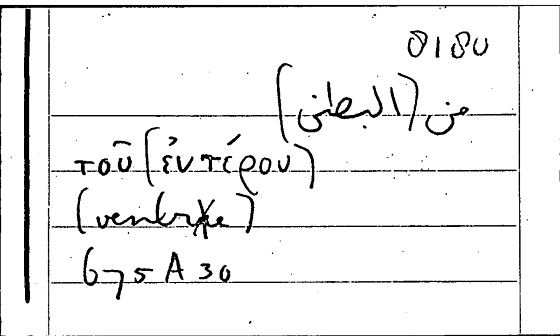 0180
من (البطن)
τοῦ (ἐντέρου)
675 A 30